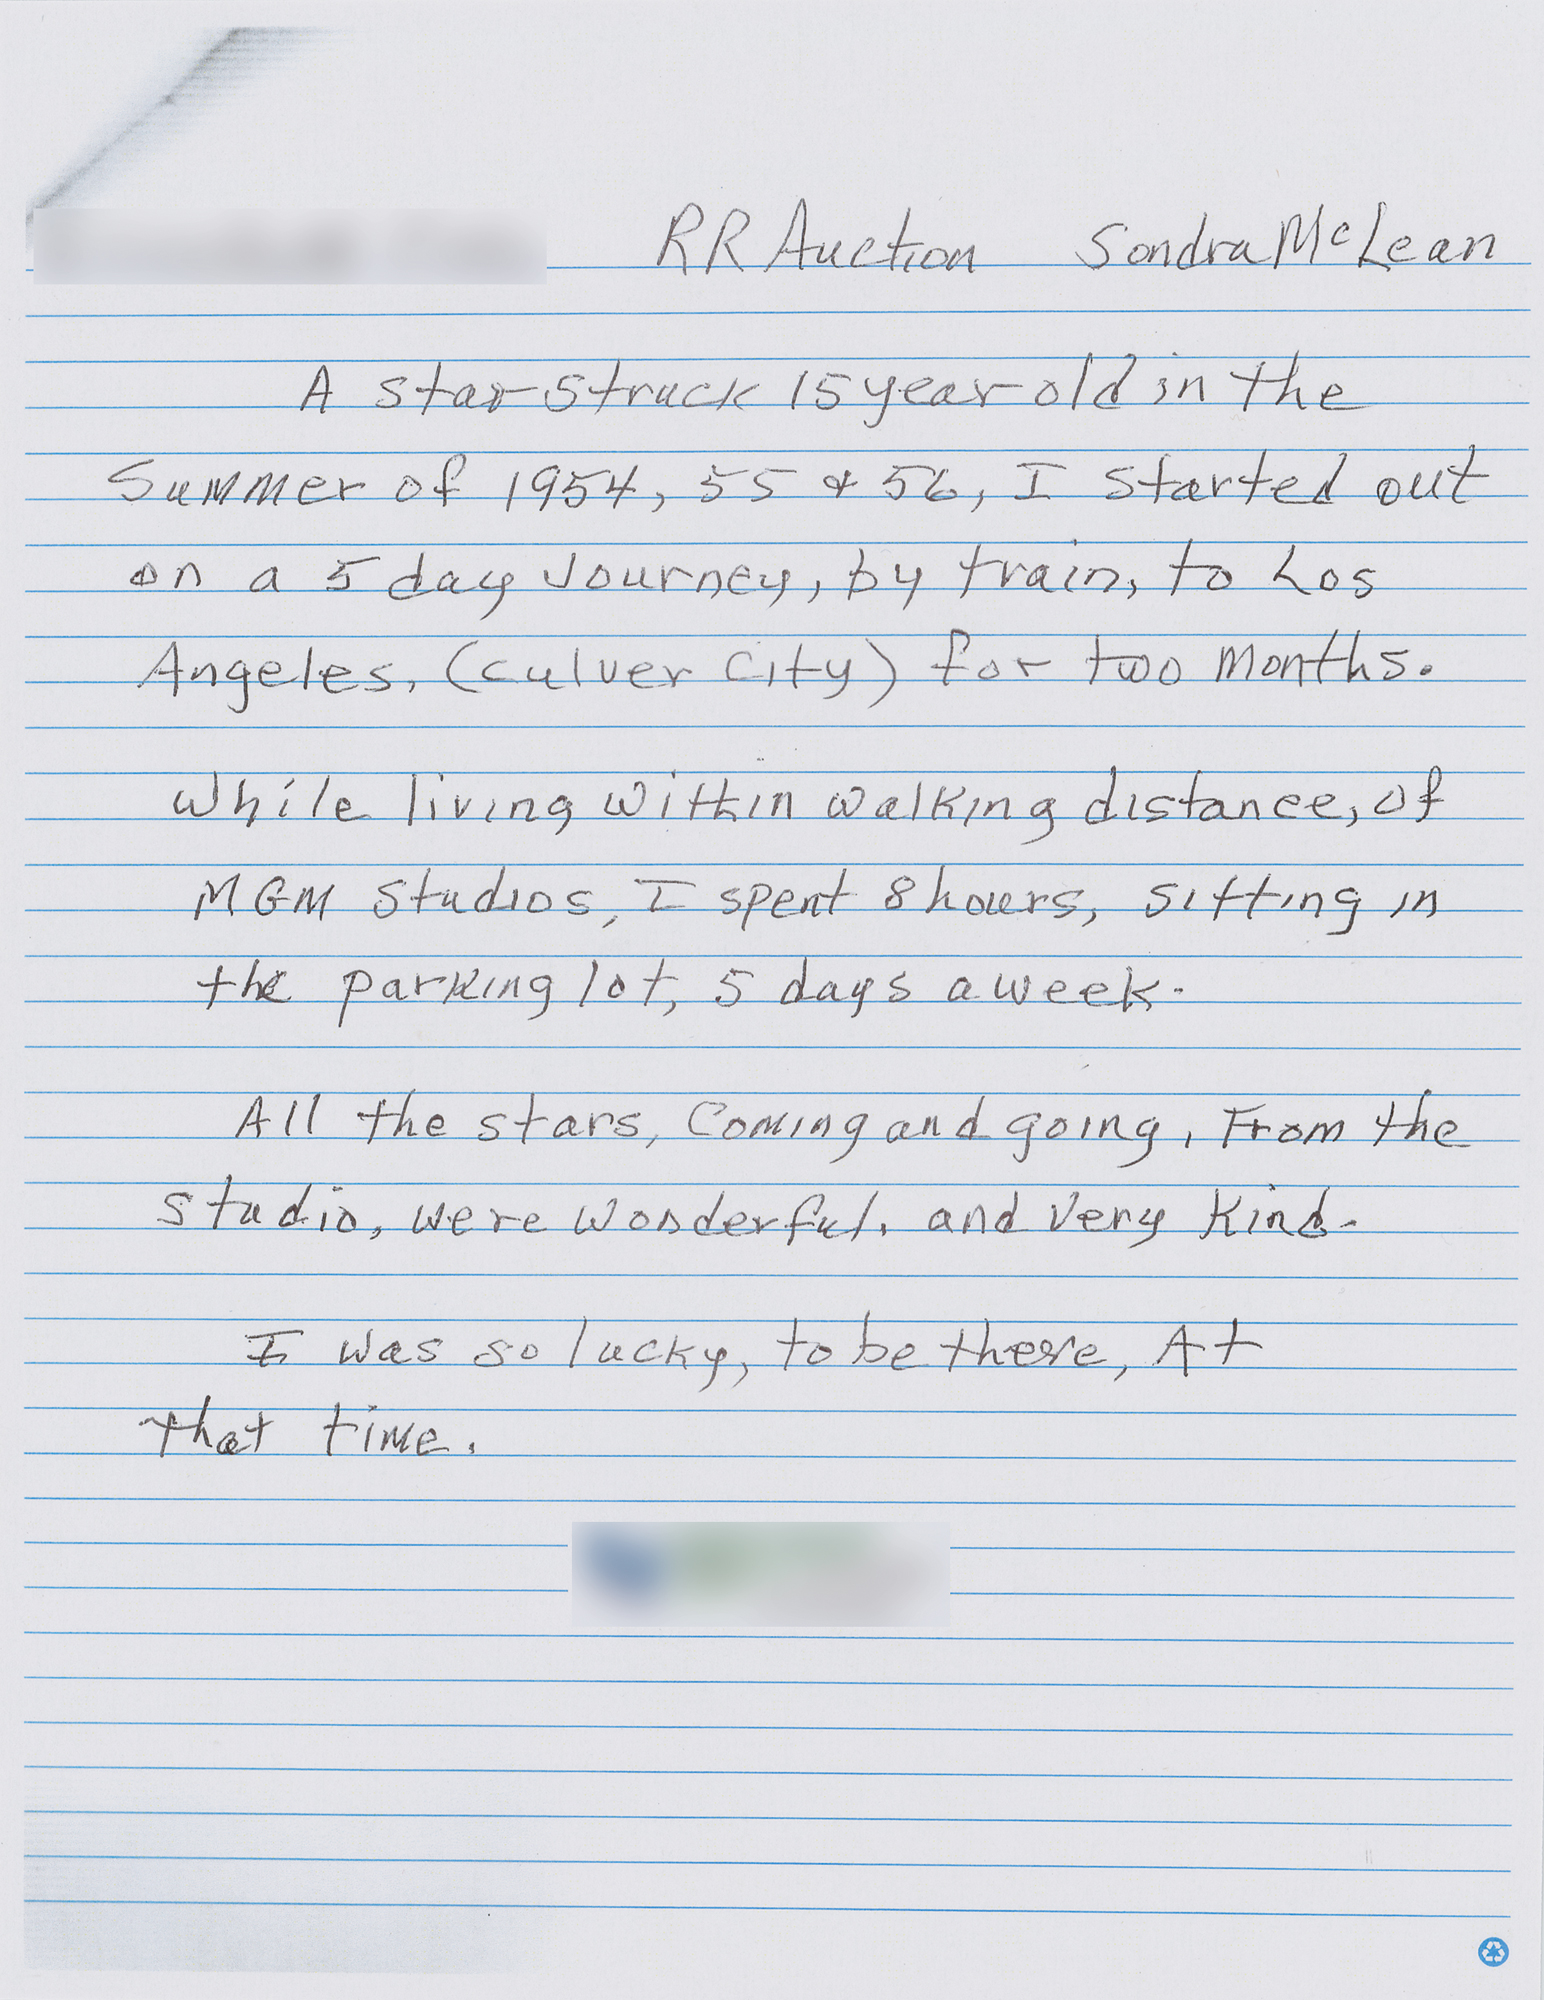 RR Auction Sondra McLean
A star struck 15 year old in the
Summer of 1954, 55 & 56, I started out
on a 5 day Journey, by train, to Los
Angeles, (Culver City) for two months.
While living within walking distance, of
MGM Studios, I spent 8 hours, sitting in
the parking lot, 5 days a week.
All the stars, Coming and going, From the
studio, were wonderful, and very kind.
I was so lucky, to be there, At
that time.